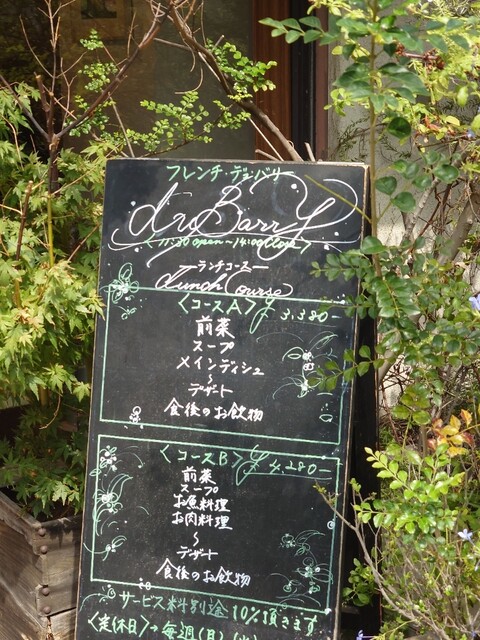 フレンチ・デュ・バリー
du Barry
<11:30 open〜14:00 close>
ランチコース
Lunch Course
<コースA> ¥3,380-
前菜
スープ
メインディシュ
〜
デザート
食後のお飲物
<コースB> ¥4,280-
前菜
スープ
お魚料理
お肉料理
〜
デザート
食後のお飲物
サービス料別途 10%頂きます
<定休日>→毎週(日)